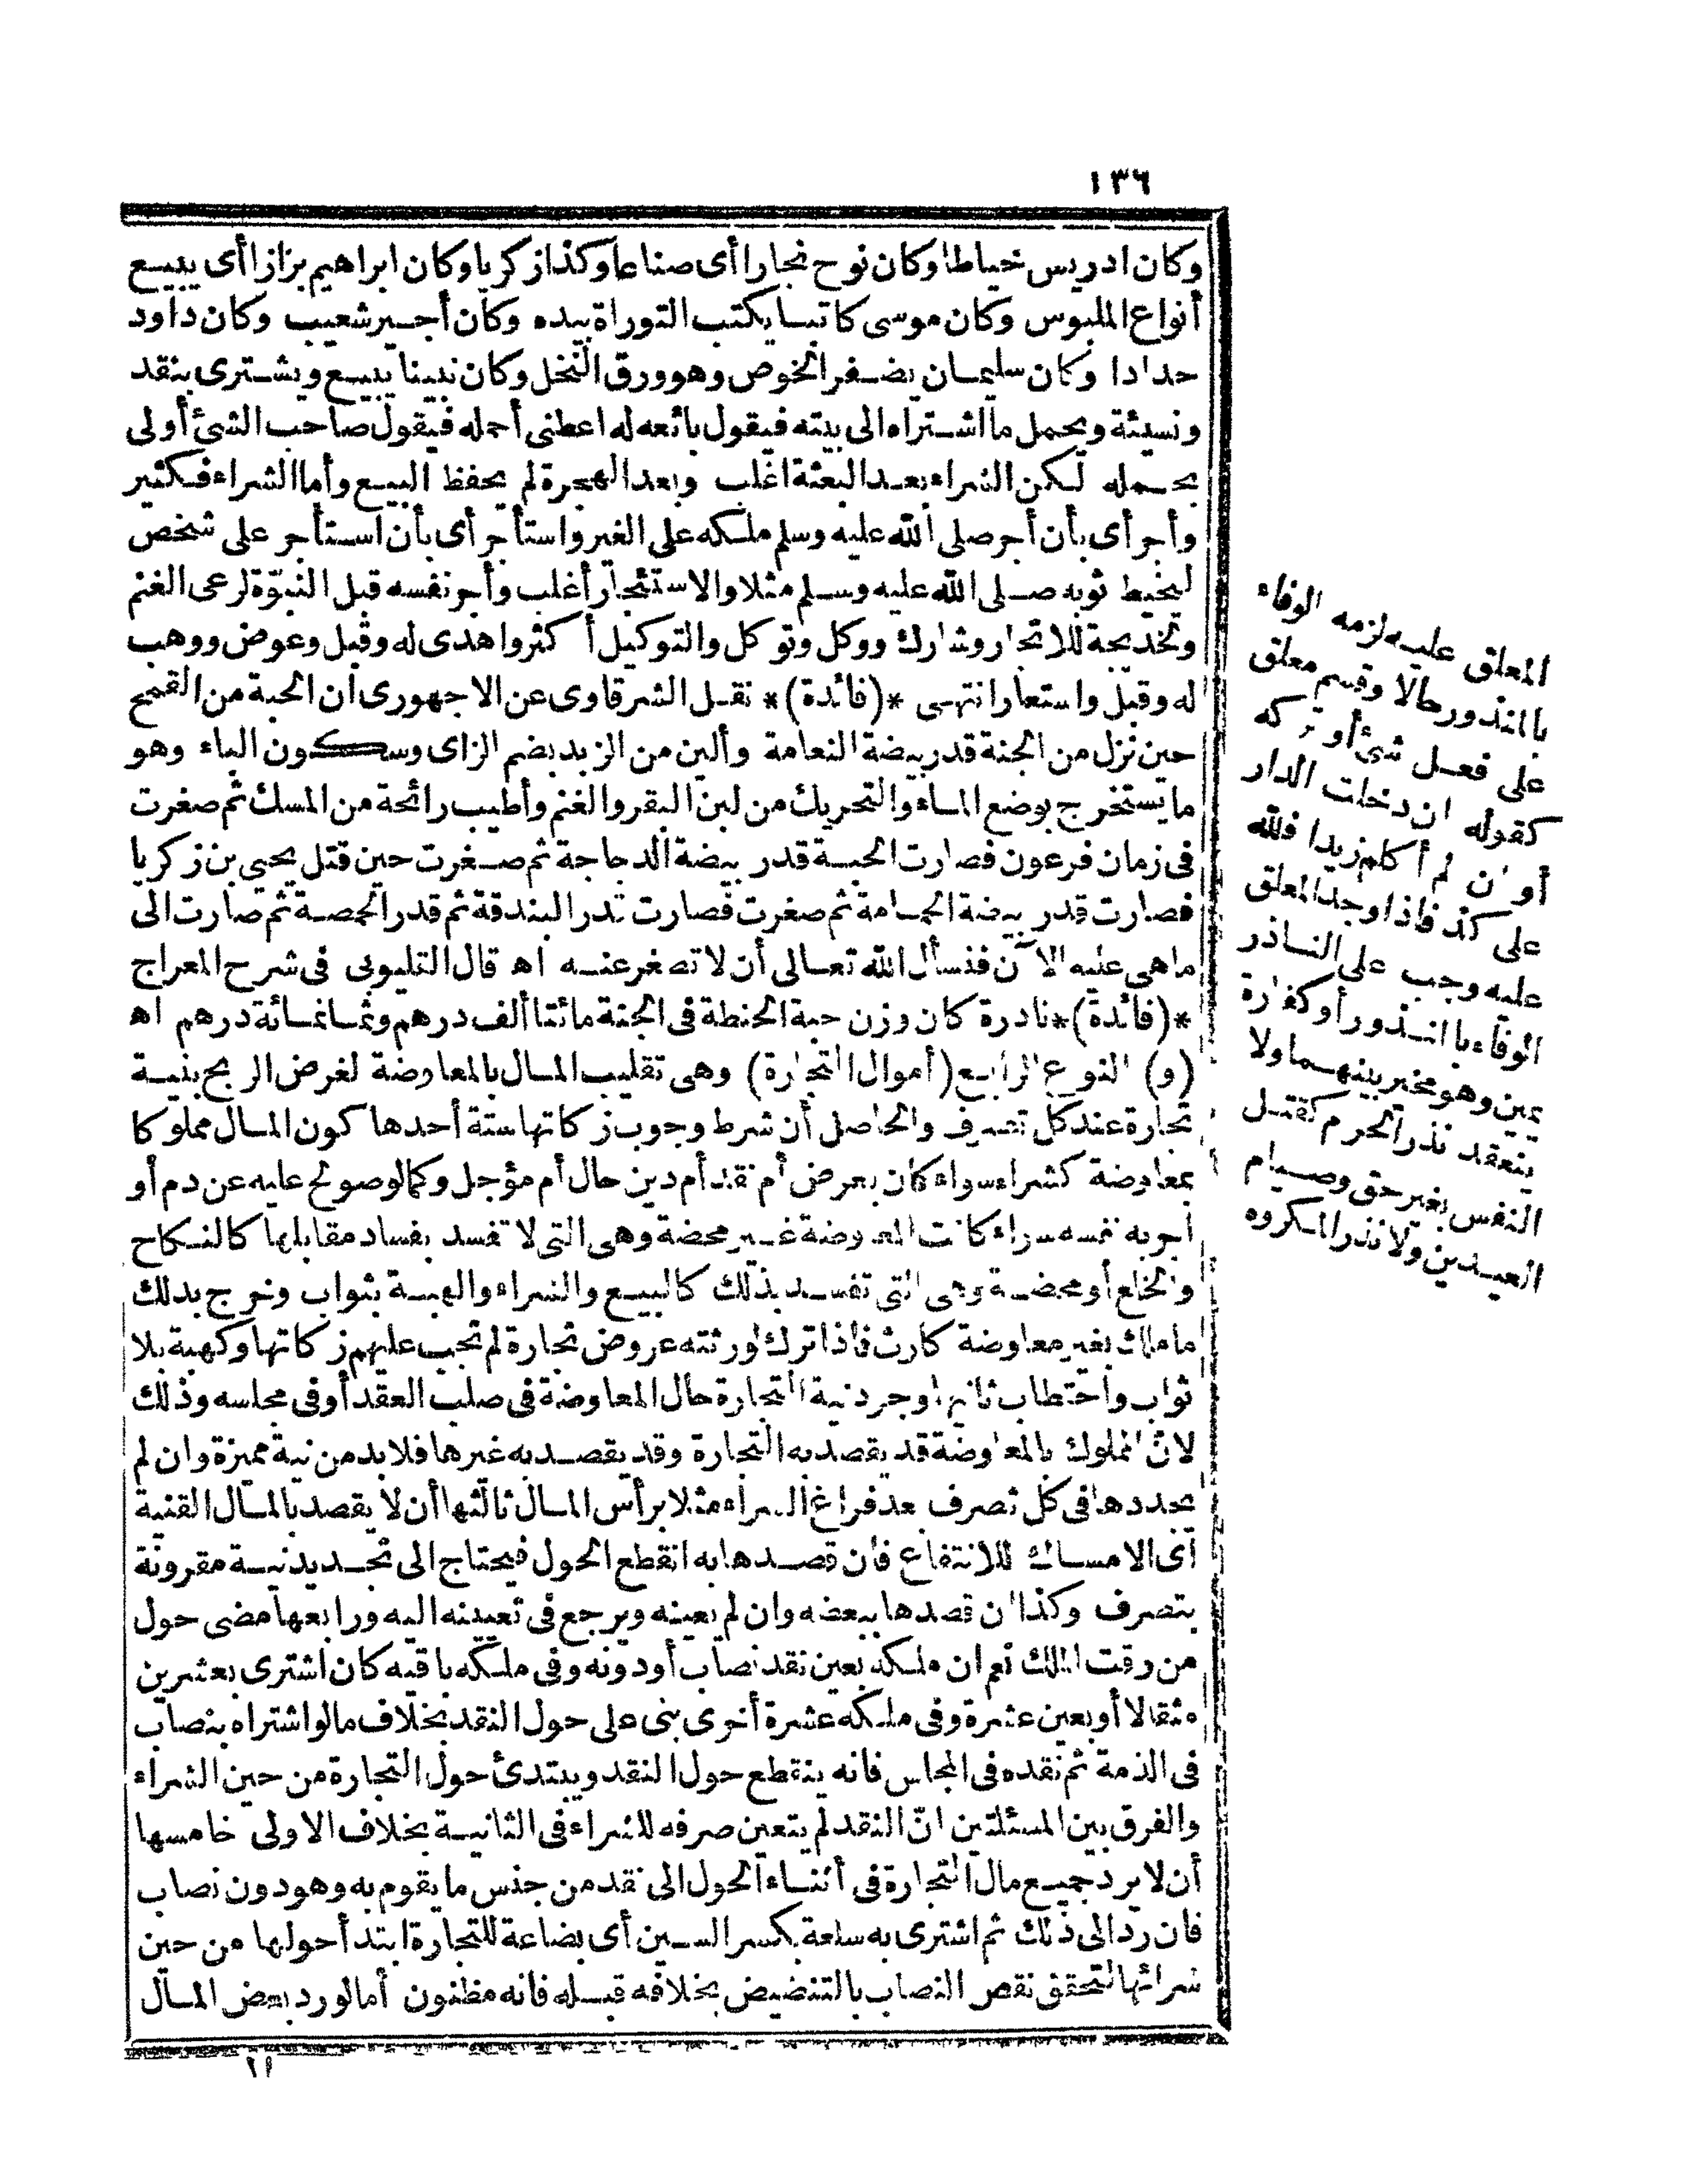 ١٣٦
وكان ادريس خياطا وكان نوح نجارا أى صناعا وكذا زكريا وكان ابراهيم بزازا أى يبيع
أنواع الملبوس وكان موسى كاتبا يكتب التوراة بيده وكان أجير شعيب وكان داود
حدادا وكان سليمان يضفر الخوص وهو ورق النخل وكان نبينا يبيع ويشترى بنقد
ونسيئة ويحمل ما اشتراه الى بيته فيقول بائعه له اعطنى أحمله فيقول صاحب الشئ أولى
بحمله لكن الشراء بعد البعثة اغلب وبعد الهجرة لم يحفظ البيع وأما الشراء فكثير
وأجر أى بأن أجر صلى الله عليه وسلم ملكه على الغير واستأجر أى بأن استأجر على شخص
ليخيط ثوبه صلى الله عليه وسلم مثلا والاستئجار أغلب وأجر نفسه قبل النبوّة لرعى الغنم
وخديجة للاتجار وشارك ووكل وتوكل والتوكيل أكثر واهدى له وقبل وعوض ووهب
له وقبل واستعار انتهى *(فائدة)* نقل الشرقاوى عن الاجهورى أن الحبة من القمح
حين نزل من الجنة قدر بيضة النعامة وألين من الزبد بضم الزاى وسكون الباء وهو
ما يستخرج بوضع الماء والتحريك من لبن البقر والغنم وأطيب رائحة من المسك ثم صغرت
فى زمان فرعون فصارت الحبة قدر بيضة الدجاجة ثم صغرت حين قتل يحيى بن زكريا
فصارت قدر بيضة الحمامة ثم صغرت فصارت قدر البندقة ثم قدر الحمصة ثم صارت الى
ما هى عليه الآن فنسأل الله تعالى أن لا تصغر عنه اه قال القليوبى فى شرح المعراج
*(فائدة)* نادرة كان وزن حبة الحنطة فى الجنة مائتا ألف درهم وثمانمائة درهم اه
(و) النوع الرابع (أموال التجارة) وهى تقليب المال بالمعاوضة لغرض الربح بنية
تجارة عند كل تصرف والحاصل أن شرط وجوب زكاتها ستة أحدها كون المال مملوكا
بمعاوضة كشراء سواء كان بعرض أم نقد أم دين حال أم مؤجل وكما لو صولح عليه عن دم أو
اجر به نفسه سواء كانت المعاوضة غير محضة وهى التى لا تفسد بفساد مقابلها كالنكاح
والخلع أو محضة وهى التى تفسد بذلك كالبيع والشراء والهبة بثواب وخرج بذلك
ما ملك بغير معاوضة كارث فاذا ترك لورثته عروض تجارة لم تجب عليهم زكاتها وكهبة بلا
ثواب واحتطاب ثانيها وجود نية التجارة حال المعاوضة فى صلب العقد أو فى مجلسه وذلك
لانّ المملوك بالمعاوضة قد يقصد به التجارة وقد يقصد به غيرها فلا بد من نية مميزة وان لم
يجددها فى كل تصرف بعد فراغ الشراء مثلا برأس المال ثالثها أن لا يقصد بالمال القنية
أى الامساك للانتفاع فان قصدها به انقطع الحول فيحتاج الى تجديد نية مقرونة
بتصرف وكذا ان قصدها ببعضه وان لم يعينه ويرجع فى تعيينه اليه ورابعها مضى حول
من وقت الملك نعم ان ملكه بعين نقد نصاب أو دونه وفى ملكه باقيه كان اشترى بعشرين
مثقالا أو بعين عشرة وفى ملكه عشرة أخرى بنى على حول النقد بخلاف ما لو اشتراه بنصاب
فى الذمة ثم نقده فى المجلس فانه ينقطع حول النقد ويبتدئ حول التجارة من حين الشراء
والفرق بين المسئلتين انّ النقد لم يتعين صرفه للشراء فى الثانية بخلاف الاولى خامسها
أن لا يرد جميع مال التجارة فى أثناء الحول الى نقد من جنس ما يقوم به وهو دون نصاب
فان رد الى ذلك ثم اشترى به سلعة بكسر السين أى بضاعة للتجارة ابتدأ حولها من حين
شرائها لتحقق نقص النصاب بالتنضيض بخلافه قبله فانه مظنون أما لو رد بعض المال
المعلق عليه لزمه الوفاء
بالنذور حالا وقسم معلق
على فعل شئ أو تركه
كقوله ان دخلت الدار
أو ان لم أكلم زيدا فلله
على كذا فاذا وجد المعلق
عليه وجب على الناذر
الوفاء بالنذور أو كفارة
يمين وهو مخير بينهما ولا
ينعقد نذر الحرم كقتل
النفس بغير حق وصيام
العيدين ولا نذر المكروه